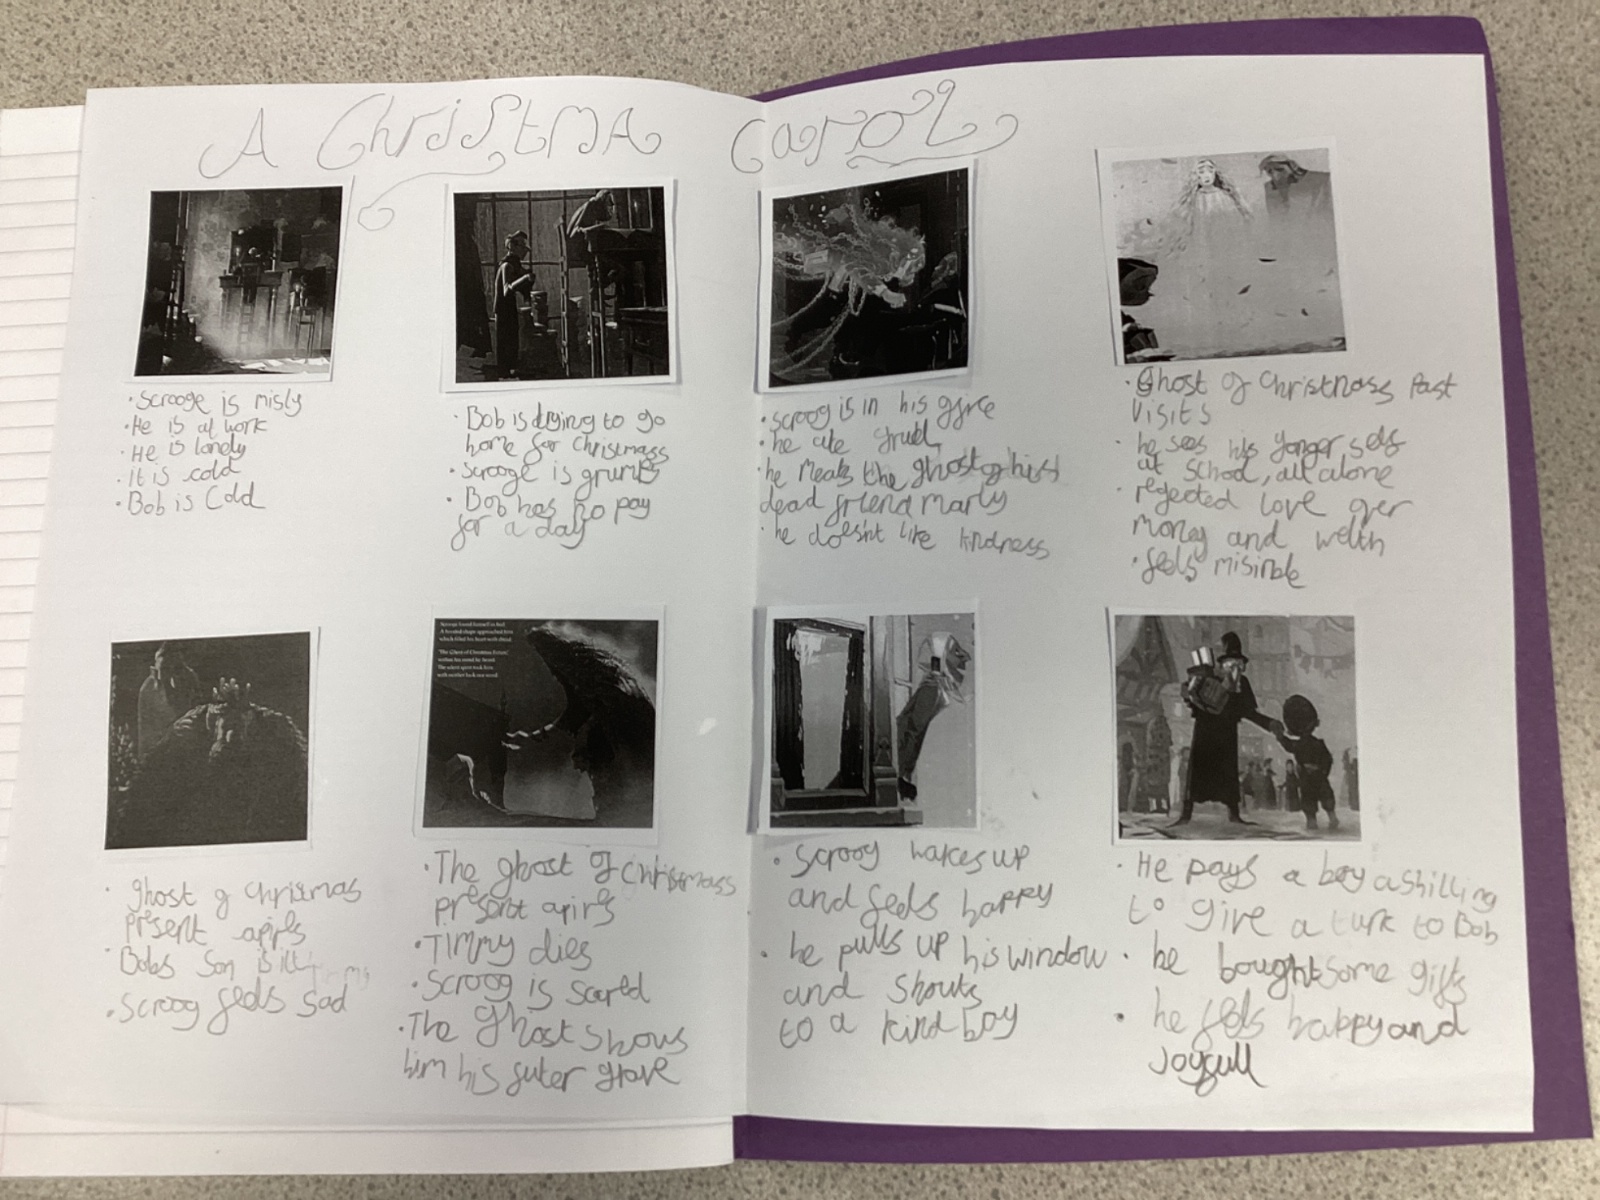 A ChristmA Carol
• Scrooge is misly
• He is at work
• He is lonely
• it is cold
• Bob is Cold
• Bob is trying to go
home for Christmass
• Scrooge is grum
• Bob has no pay
for a day
• scroog is in his
• he ate gruel
• he Meats the ghost of his
dead friend marly
• he doesn't like kindness
• Ghost of Christmass Past
Visits
• he sees his yonger self
at school, all alone
• regected love over
money and welth
• feels misirble
• ghost of Christmas
present apirs
• Bobs Son is ill
• Scroog feels sad
Scrooge found himself in bed.
A hooded shape approached him
which filled his heart with dread.
'The Ghost of Christmas Future,'
within his mind he heard.
The silent spirit took him
with neither look nor word.
• The ghost of Christmass
present apirs
• Timmy dies
• Scroog is scared
• The Ghost shows
him his futer grave
• Scroog wakes up
and feels happy
• he pulls up his window
and shouts
to a kind boy
• He pays a boy a shilling
to give a turk to Bob
• he bought some gifts
• he fells happy and
Joyfull